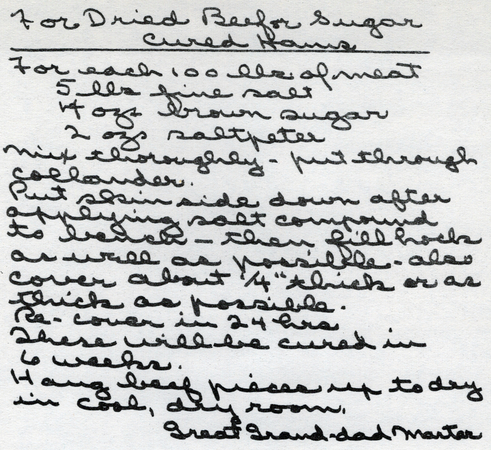 For Dried Beef or Sugar
Cured Hams
For each 100 lbs of meat
5 lbs fine salt
14 ozs brown sugar
2 ozs saltpeter
Mix thoroughly - put through
collander.
Put skin side down after
applying salt compound
to bench - then fill hock
as well as possible - also
cover about 1/4" thick or as
thick as possible.
Re-cover in 24 hrs
These will be cured in
6 weeks.
Hang beef pieces up to dry
in cool, dry room.
Great Grand-dad Martar